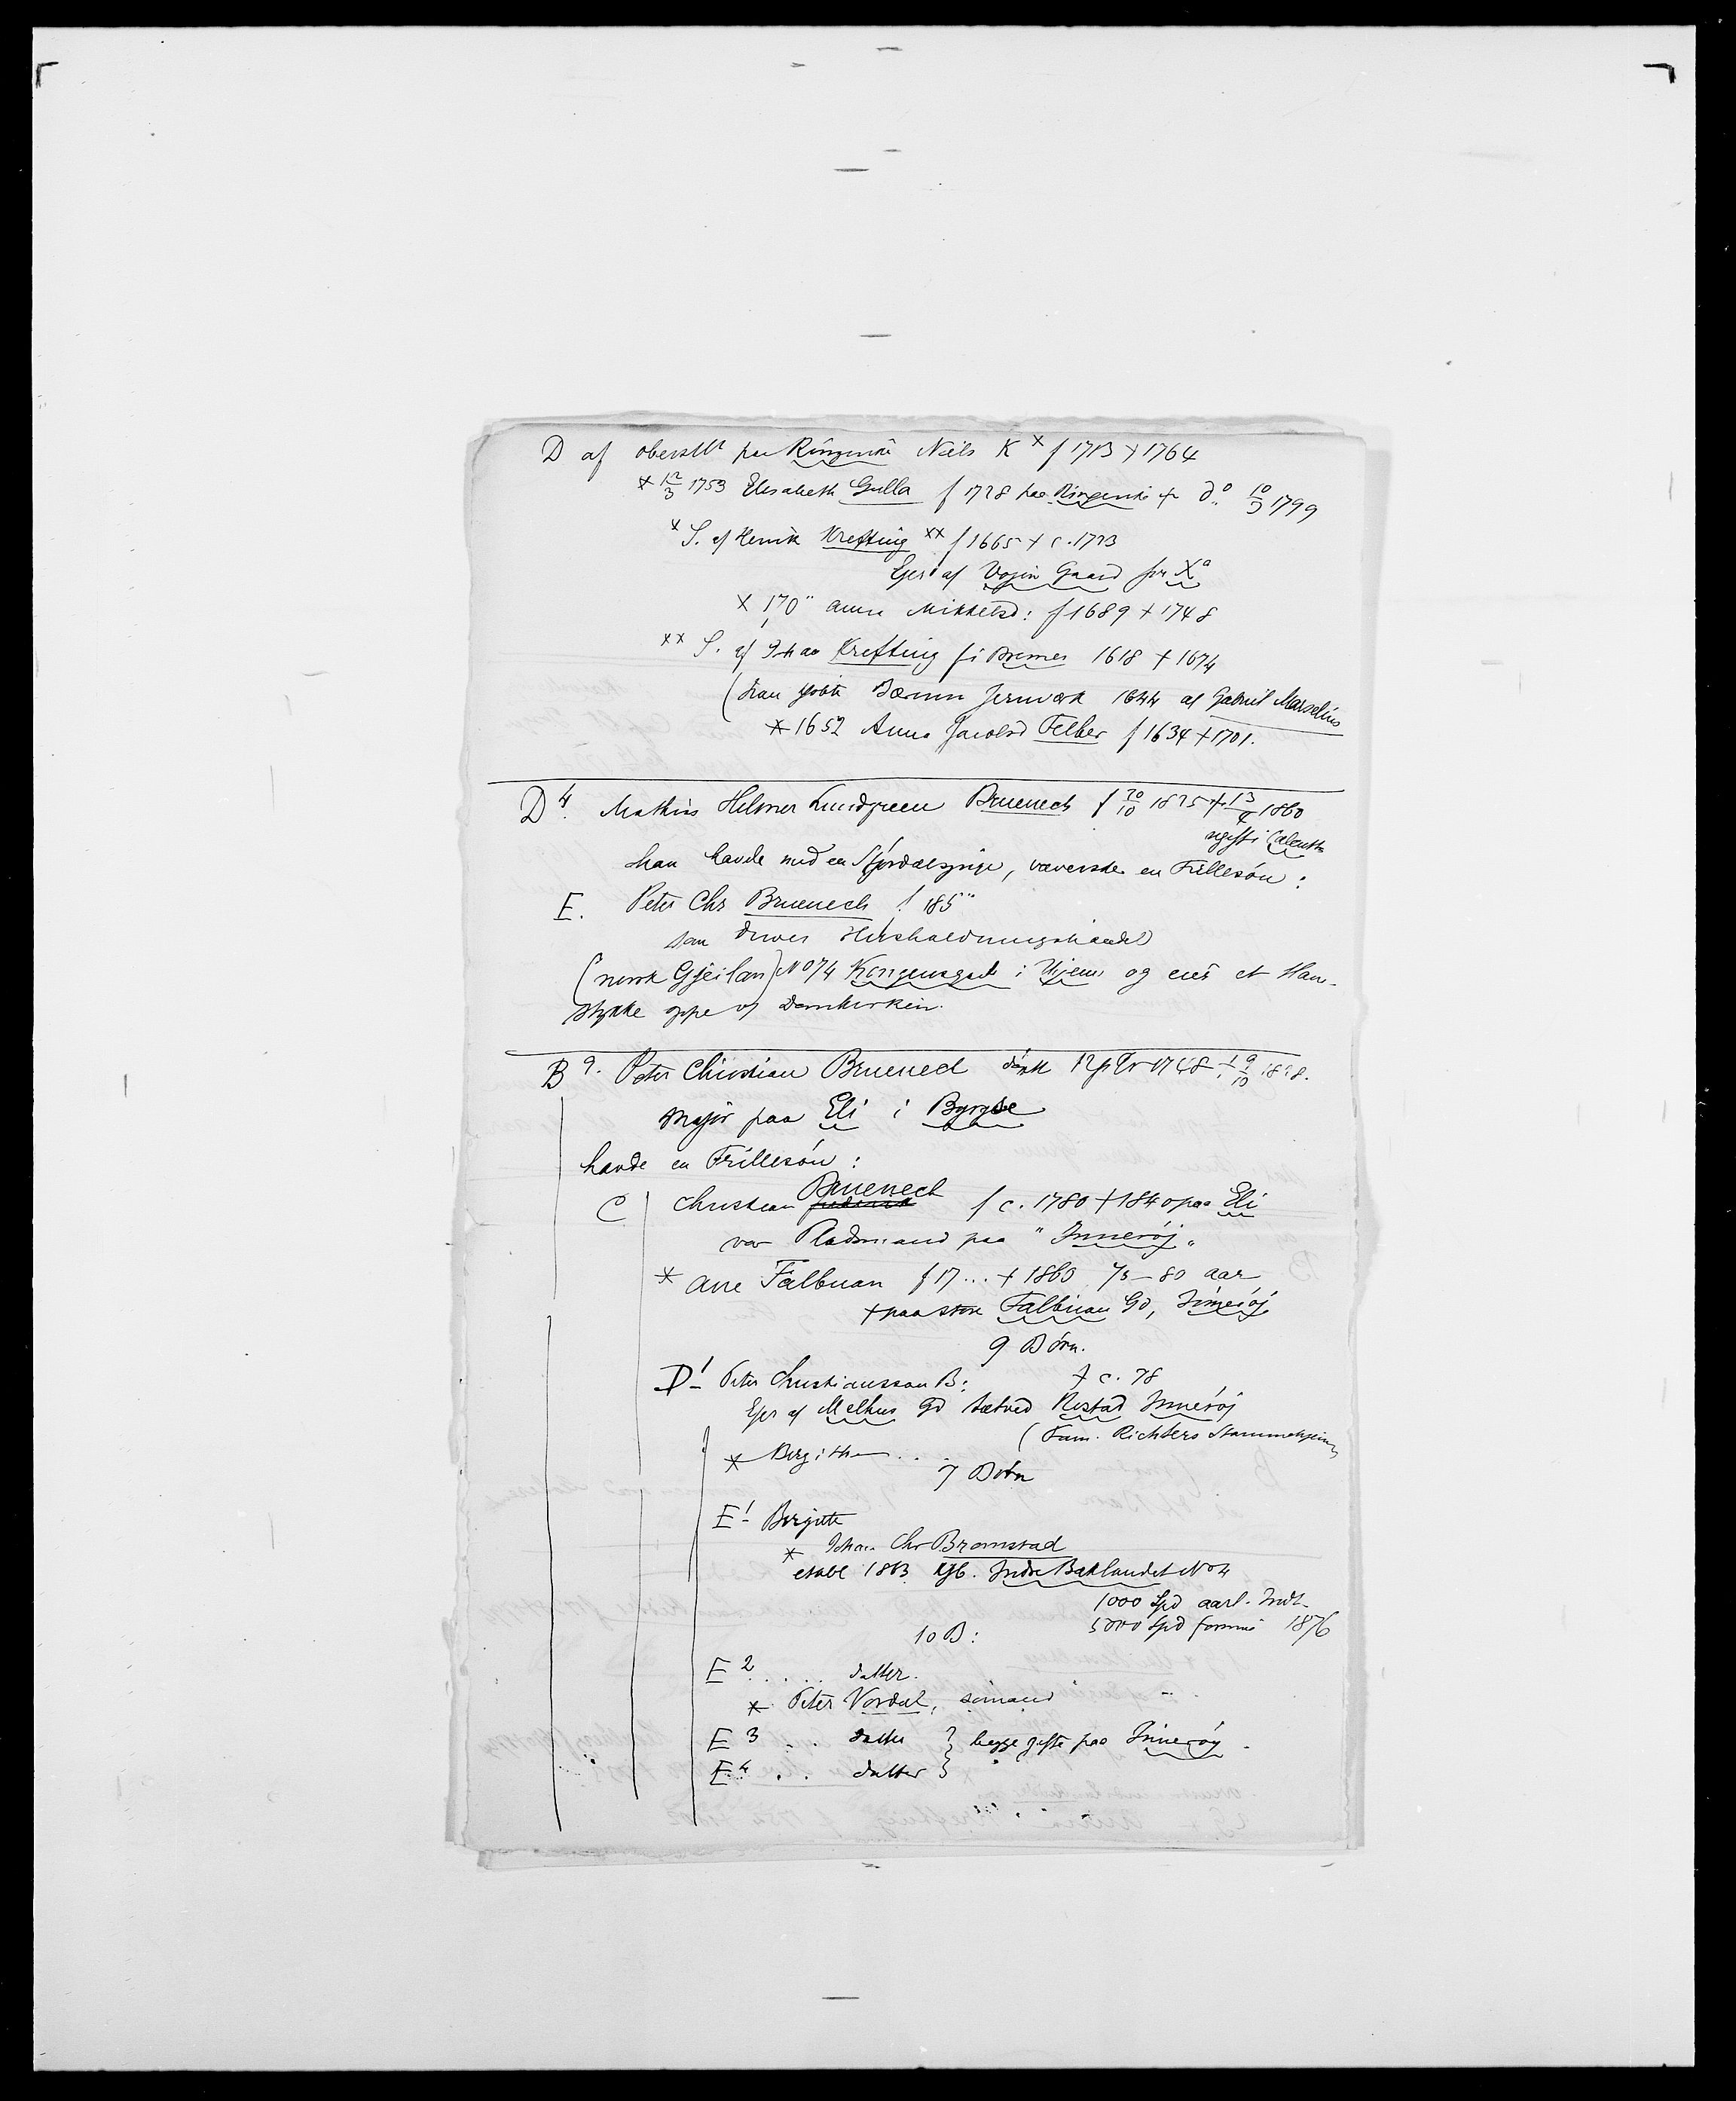 D af oberstlt paa Ringerike Niels K x f 1713 † 1764
x 12/3 1753 Elisabeth Gulla f 1728 paa Ringerike † do 10/3 1799
x S. af Henrik Krefting xx f 1665 † c. 1723
Ejer af Vøyin Gaard for Xa
x 170" Anna Mikkelsd: f 1689 † 1748
xx S. af Johan Krefting f i Bremen 1618 † 1674
(han kjøbte Bærum Jernværk 1644 af Gabriel Marselius
x 1652 Anna Jacobsd Felber f 1634 † 1701.
D4. Mathias Hilmer Lundgreen Bruenech f 20/10 1825 † 13/4 1860
ugift i Calcutta
han havde med en Stjørdalspige, væverske en Frillesøn:
E. Peter Chr Bruenech f 185"
som driver Husholdningshandel
(norsk Gjeilan) No 74 Kongensgade i Hjem og eier et Hau-
stykke oppe v/ Domkirken.
B9. Peter Christian Bruenech døpt 1748 † 9/10 1828.
Major paa Eli i Byrgde
havde en Frillesøn:
C Christian Bruenech f c. 1780 † 1840 paa Eli
var Pladsmand paa "Inderøj"
x Ane Falbuan f 17... † 1860 75-80 aar
† paa store Falbuan Gd, Inderøj
9 Børn.
D1 Peter Christiansson B: † c. 78
Ejer af Melhus Gd tætved Rostad Inderøj
(Fam. Richters Stammehjem)
x Birgithe ...
7 Børn
E1 Birgitte
x Johan Chr Bromstad
etabl 1863 Kjb. Indre Baklandet No 4
1000 Spd aarl. Indt.
5000 Spd formue 1876
10 B:
E2 .... datter.
x Peter Vordal, sømand
E3 .. datter } begge gifte paa Inderøy.
E4 .. datter }